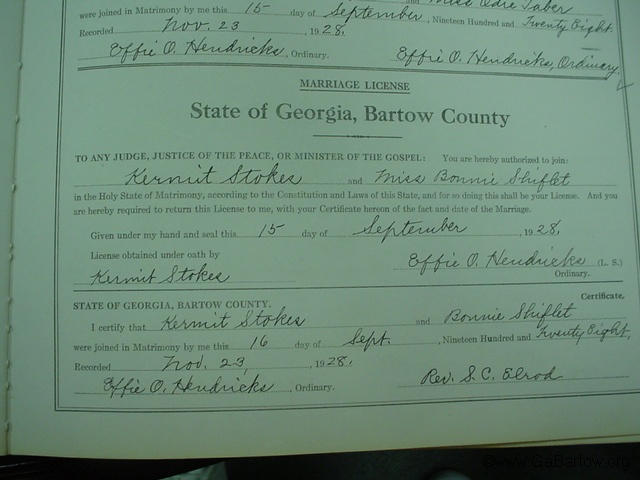 and Miss Odie Taber
were joined in Matrimony by me this 15 day of September, Nineteen Hundred and Twenty Eight.
Recorded Nov. 23 1928.
Effie O. Hendricks, Ordinary. Effie O. Hendricks, Ordinary.
MARRIAGE LICENSE
State of Georgia, Bartow County
TO ANY JUDGE, JUSTICE OF THE PEACE, OR MINISTER OF THE GOSPEL: You are hereby authorized to join:
Kermit Stokes and Miss Bonnie Shiflet
in the Holy State of Matrimony, according to the Constitution and Laws of this State, and for so doing this shall be your License. And you
are hereby required to return this License to me, with your Certificate hereon of the fact and date of the Marriage.
Given under my hand and seal this 15 day of September, 1928.
License obtained under oath by Effie O. Hendricks (L. S.)
Kermit Stokes Ordinary.
STATE OF GEORGIA, BARTOW COUNTY. Certificate.
I certify that Kermit Stokes and Bonnie Shiflet
were joined in Matrimony by me this 16 day of Sept. , Nineteen Hundred and Twenty Eight,
Recorded Nov. 23, 1928.
Effie O. Hendricks, Ordinary. Rev. S. C. Elrod
©www.GaBartow.org